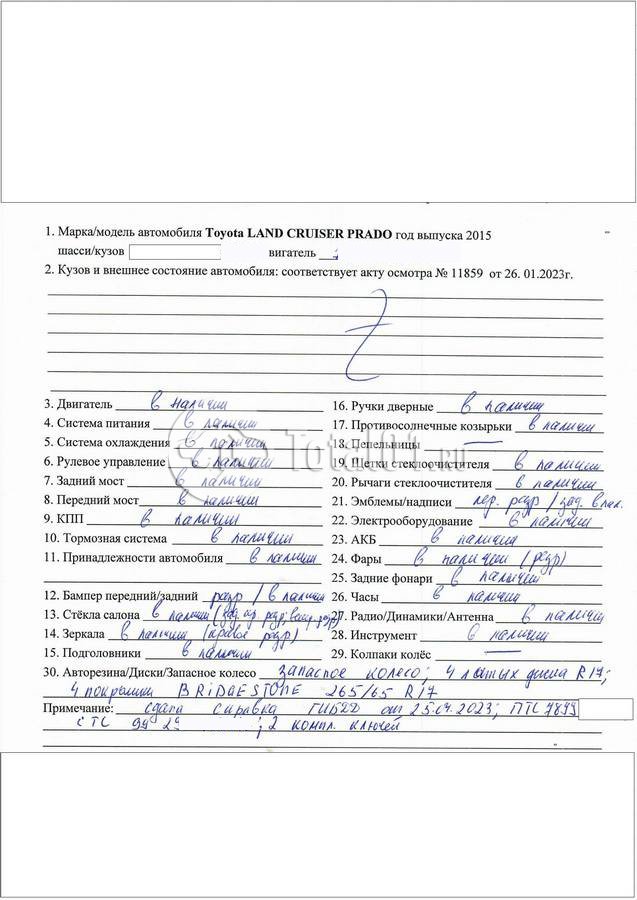 1. Марка/модель автомобиля Toyota LAND CRUISER PRADO год выпуска 2015
шасси/кузов вигатель
2. Кузов и внешнее состояние автомобиля: соответствует акту осмотра № 11859 от 26. 01.2023г.
Z
3. Двигатель в наличии
4. Система питания в наличии
5. Система охлаждения в наличии
6. Рулевое управление в наличии
7. Задний мост в наличии
8. Передний мост в наличии
9. КПП в наличии
10. Тормозная система в наличии
11. Принадлежности автомобиля в наличии
12. Бампер передний/задний разр / в наличии
13. Стёкла салона в наличии
14. Зеркала в наличии (правое разр)
15. Подголовники в наличии
16. Ручки дверные в наличии
17. Противосолнечные козырьки в наличии
18. Пепельницы —
19. Щетки стеклоочистителя в наличии
20. Рычаги стеклоочистителя в наличии
21. Эмблемы/надписи пер. разр / зад. в нал.
22. Электрооборудование в наличии
23. АКБ в наличии
24. Фары в наличии (разр)
25. Задние фонари в наличии
26. Часы в наличии
27. Радио/Динамики/Антенна в наличии
28. Инструмент в наличии
29. Колпаки колёс —
30. Авторезина/Диски/Запасное колесо запасное колесо; 4 литых диска R17;
4 покрышки BRIDGESTONE 265/65 R17
Примечание: сдана справка ГИБДД от 25.04.2023; ПТС 7899
СТС 99 2; 2 компл. ключей
Total01.ru